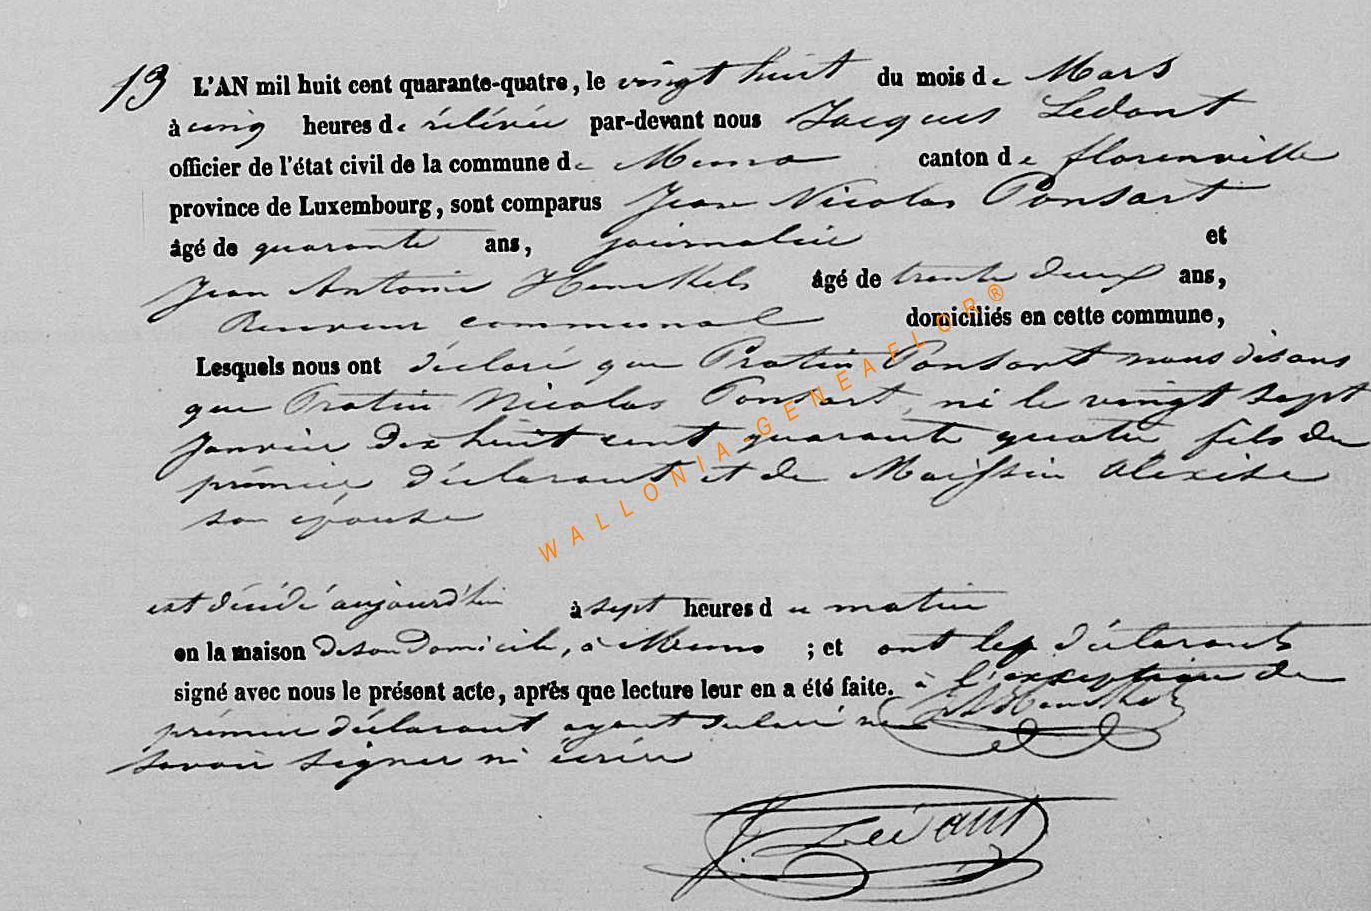 13 L'AN mil huit cent quarante-quatre, le vingt huit du mois de Mars
à cinq heures de rélévée par-devant nous Jacques Ledant
officier de l'état civil de la commune de Muno canton de florenville
province de Luxembourg, sont comparus Jean Nicolas Ponsart
âgé de quarante ans, journalier et
Jean Antoine Henckels âgé de trente deux ans,
Receveur communal domiciliés en cette commune,
Lesquels nous ont déclaré que Ponsart nous disons
que Nicolas Ponsart, né le vingt sept
Janvier dix huit cent quarante quatre fils du
prémier déclarant et de Maissin Alexise
son épouse
est décédé aujourd'hui à sept heures du matin
en la maison de son Domicile, à Muno ; et ont les déclarants
signé avec nous le présent acte, après que lecture leur en a été faite. à l'exception du
prémier déclarant ayant déclaré ne
savoir signer ni écrire
J. Ledant
WALLONIA-GENEAFLOR®